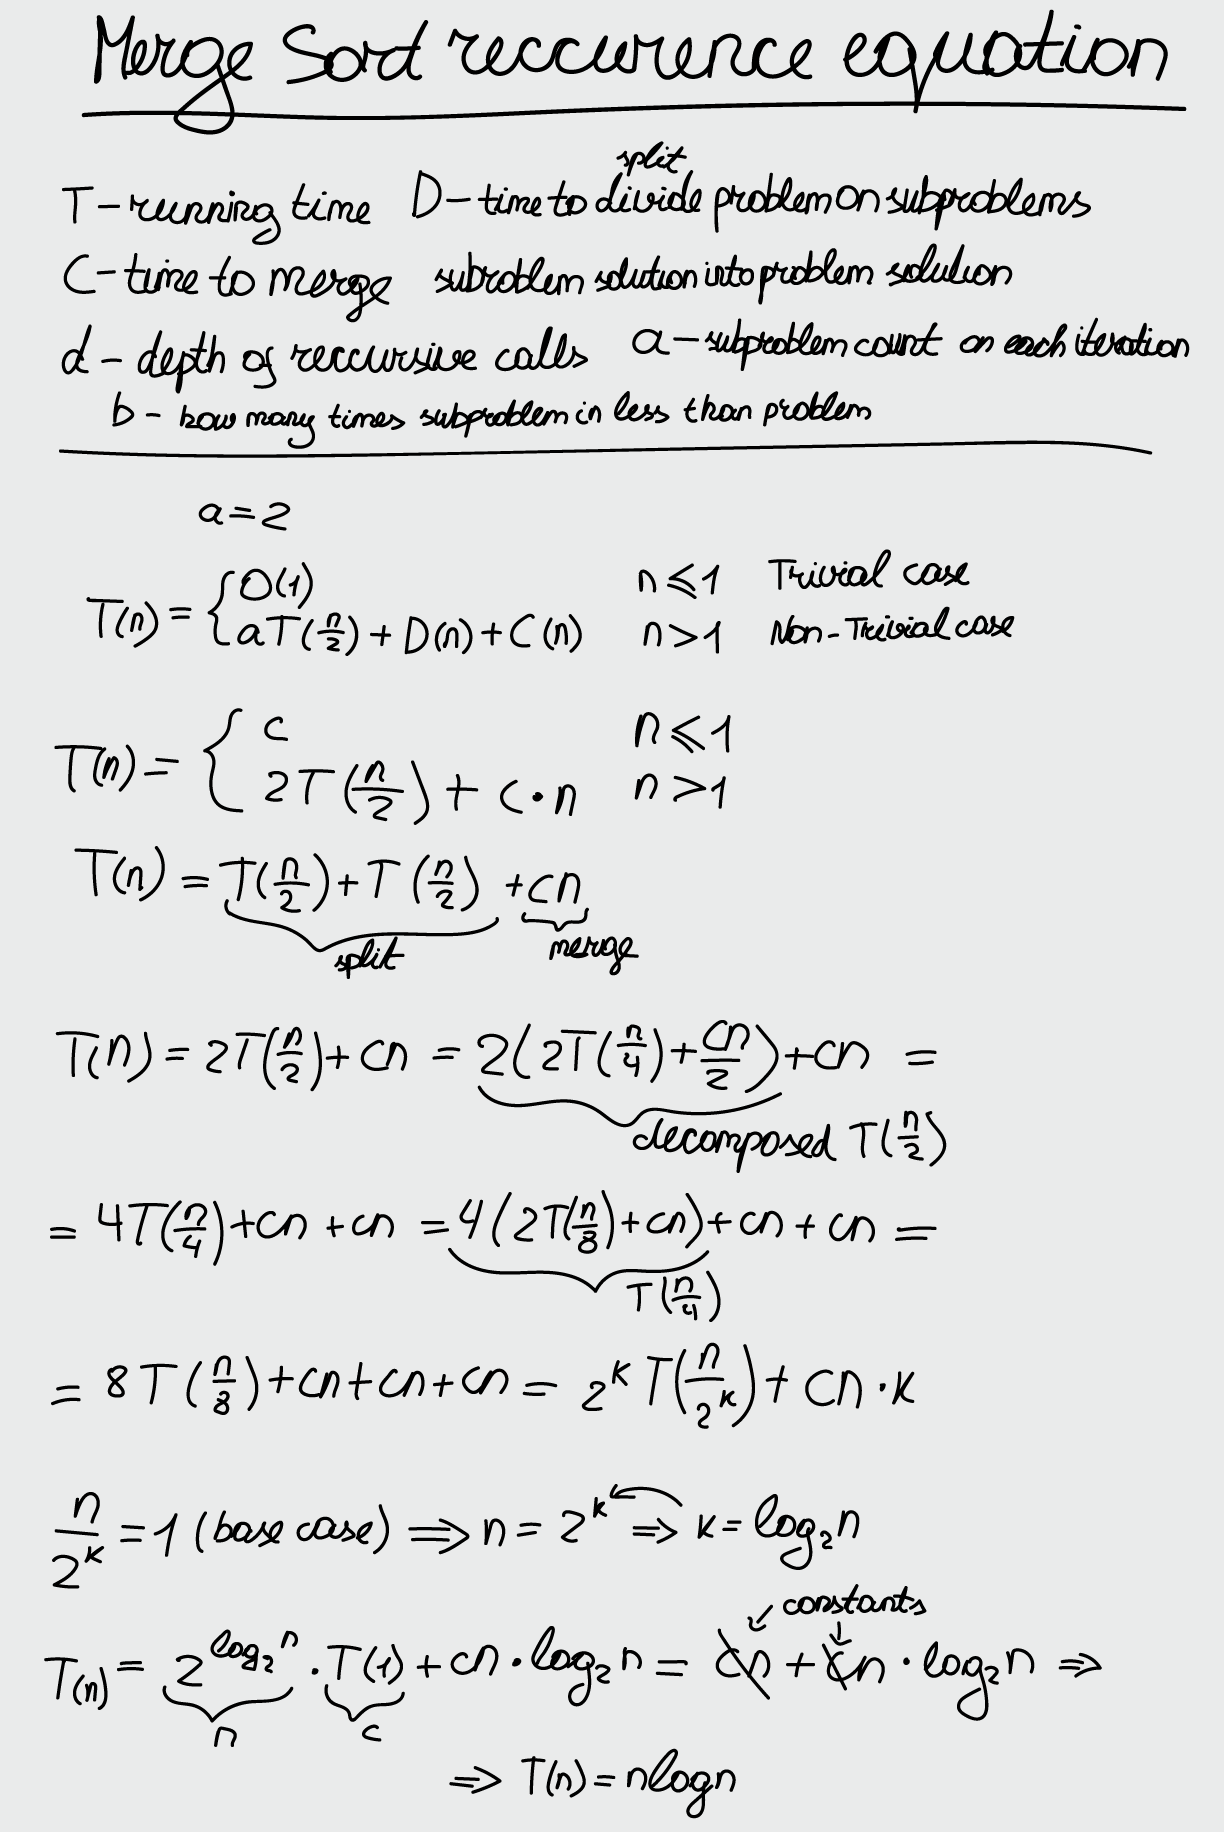 Merge Sort reccurence equation
split
T - running time D - time to divide problem on subproblems
C - time to merge subroblem solution into problem solution
d - depth of reccursive calls a - subproblem count on each iteration
b - how many times subproblem in less than problem
a = 2
T(n) = { O(1) n ⩽ 1 Trivial case
aT(n/2) + D(n) + C(n) n > 1 Non-Trivial case
T(n) = { c n ⩽ 1
2T(n/2) + c·n n > 1
T(n) = T(n/2) + T(n/2) + cn
split merge
T(n) = 2T(n/2) + cn = 2(2T(n/4) + cn/2) + cn =
decomposed T(n/2)
= 4T(n/4) + cn + cn = 4(2T(n/8) + cn) + cn + cn =
T(n/4)
= 8T(n/8) + cn + cn + cn = 2^k T(n/2^k) + cn·k
n/2^k = 1 (base case) ⟹ n = 2^k ⟹ k = log₂n
constants
T(n) = 2^(log₂n) · T(1) + cn · log₂n = cn + cn · log₂n ⇒
n c
⇒ T(n) = nlogn